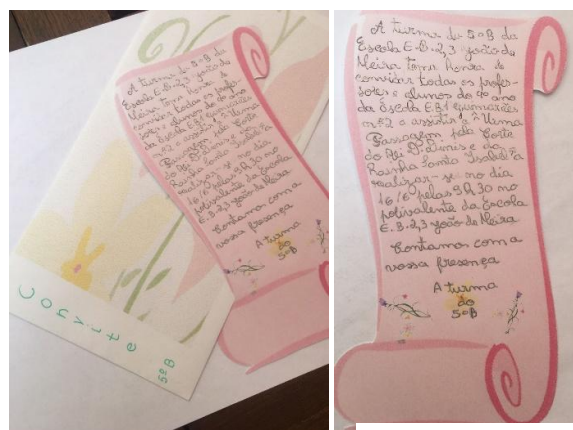 A turma do 5ºB da
Escola E.B.2,3 João de
Meira tem a honra de
convidar todas os profes-
sores e alunos do 4º ano
da Escola E.B1 Guimarães
nº2 a assistir à "Uma
Passagem pela Corte
do Rei D. Dinis e da
Rainha Santa Isabel" a
realizar-se no dia
16/6 pelas 9h30 no
polivalente da Escola
E.B.2,3 João de Meira.
Contamos com a
vossa presença
A turma
do
5ºB
Convite
5ºB
A turma do 5ºB da
Escola E.B.2,3 João de
Meira tem a honra de
convidar todas os profes-
sores e alunos do 4º ano
da Escola E.B1 Guimarães
nº2 a assistir à "Uma
Passagem pela Corte
do Rei D. Dinis e da
Rainha Santa Isabel" a
realizar-se no dia
16/6 pelas 9h30 no
polivalente da Escola
E.B.2,3 João de Meira.
Contamos com a
vossa presença
A turma
do
5ºB